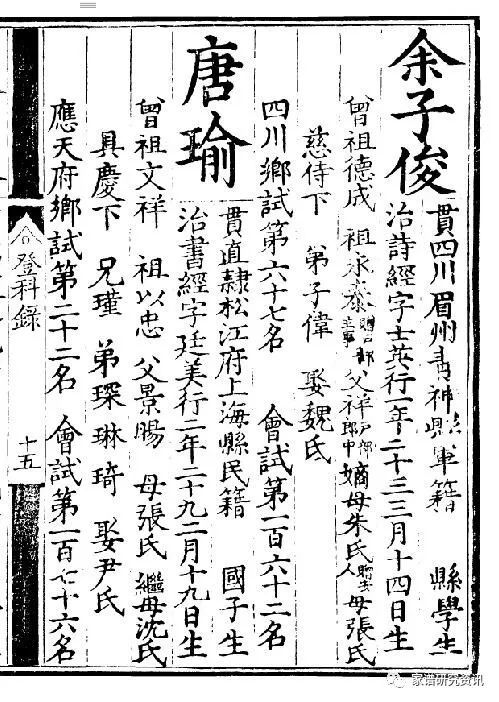 余子俊
貫四川眉州青神縣軍籍　縣學生
治詩經字士英行一年二十三三月十四日生
曾祖德成　祖永泰贈戶部主事　父祥戶部郎中　嫡母朱氏贈安人　母張氏
慈侍下　弟子偉　娶魏氏
四川鄉試第六十七名　會試第一百六十二名
唐瑜
貫直隸松江府上海縣民籍　國子生
治書經字廷美行二年二十九二月十九日生
曾祖文祥　祖以忠　父景暘　母張氏　繼母沈氏
具慶下　兄瑾　弟琛琳琦　娶尹氏
應天府鄉試第二十二名　會試第一百七十六名
登科錄
十五
家谱研究资讯